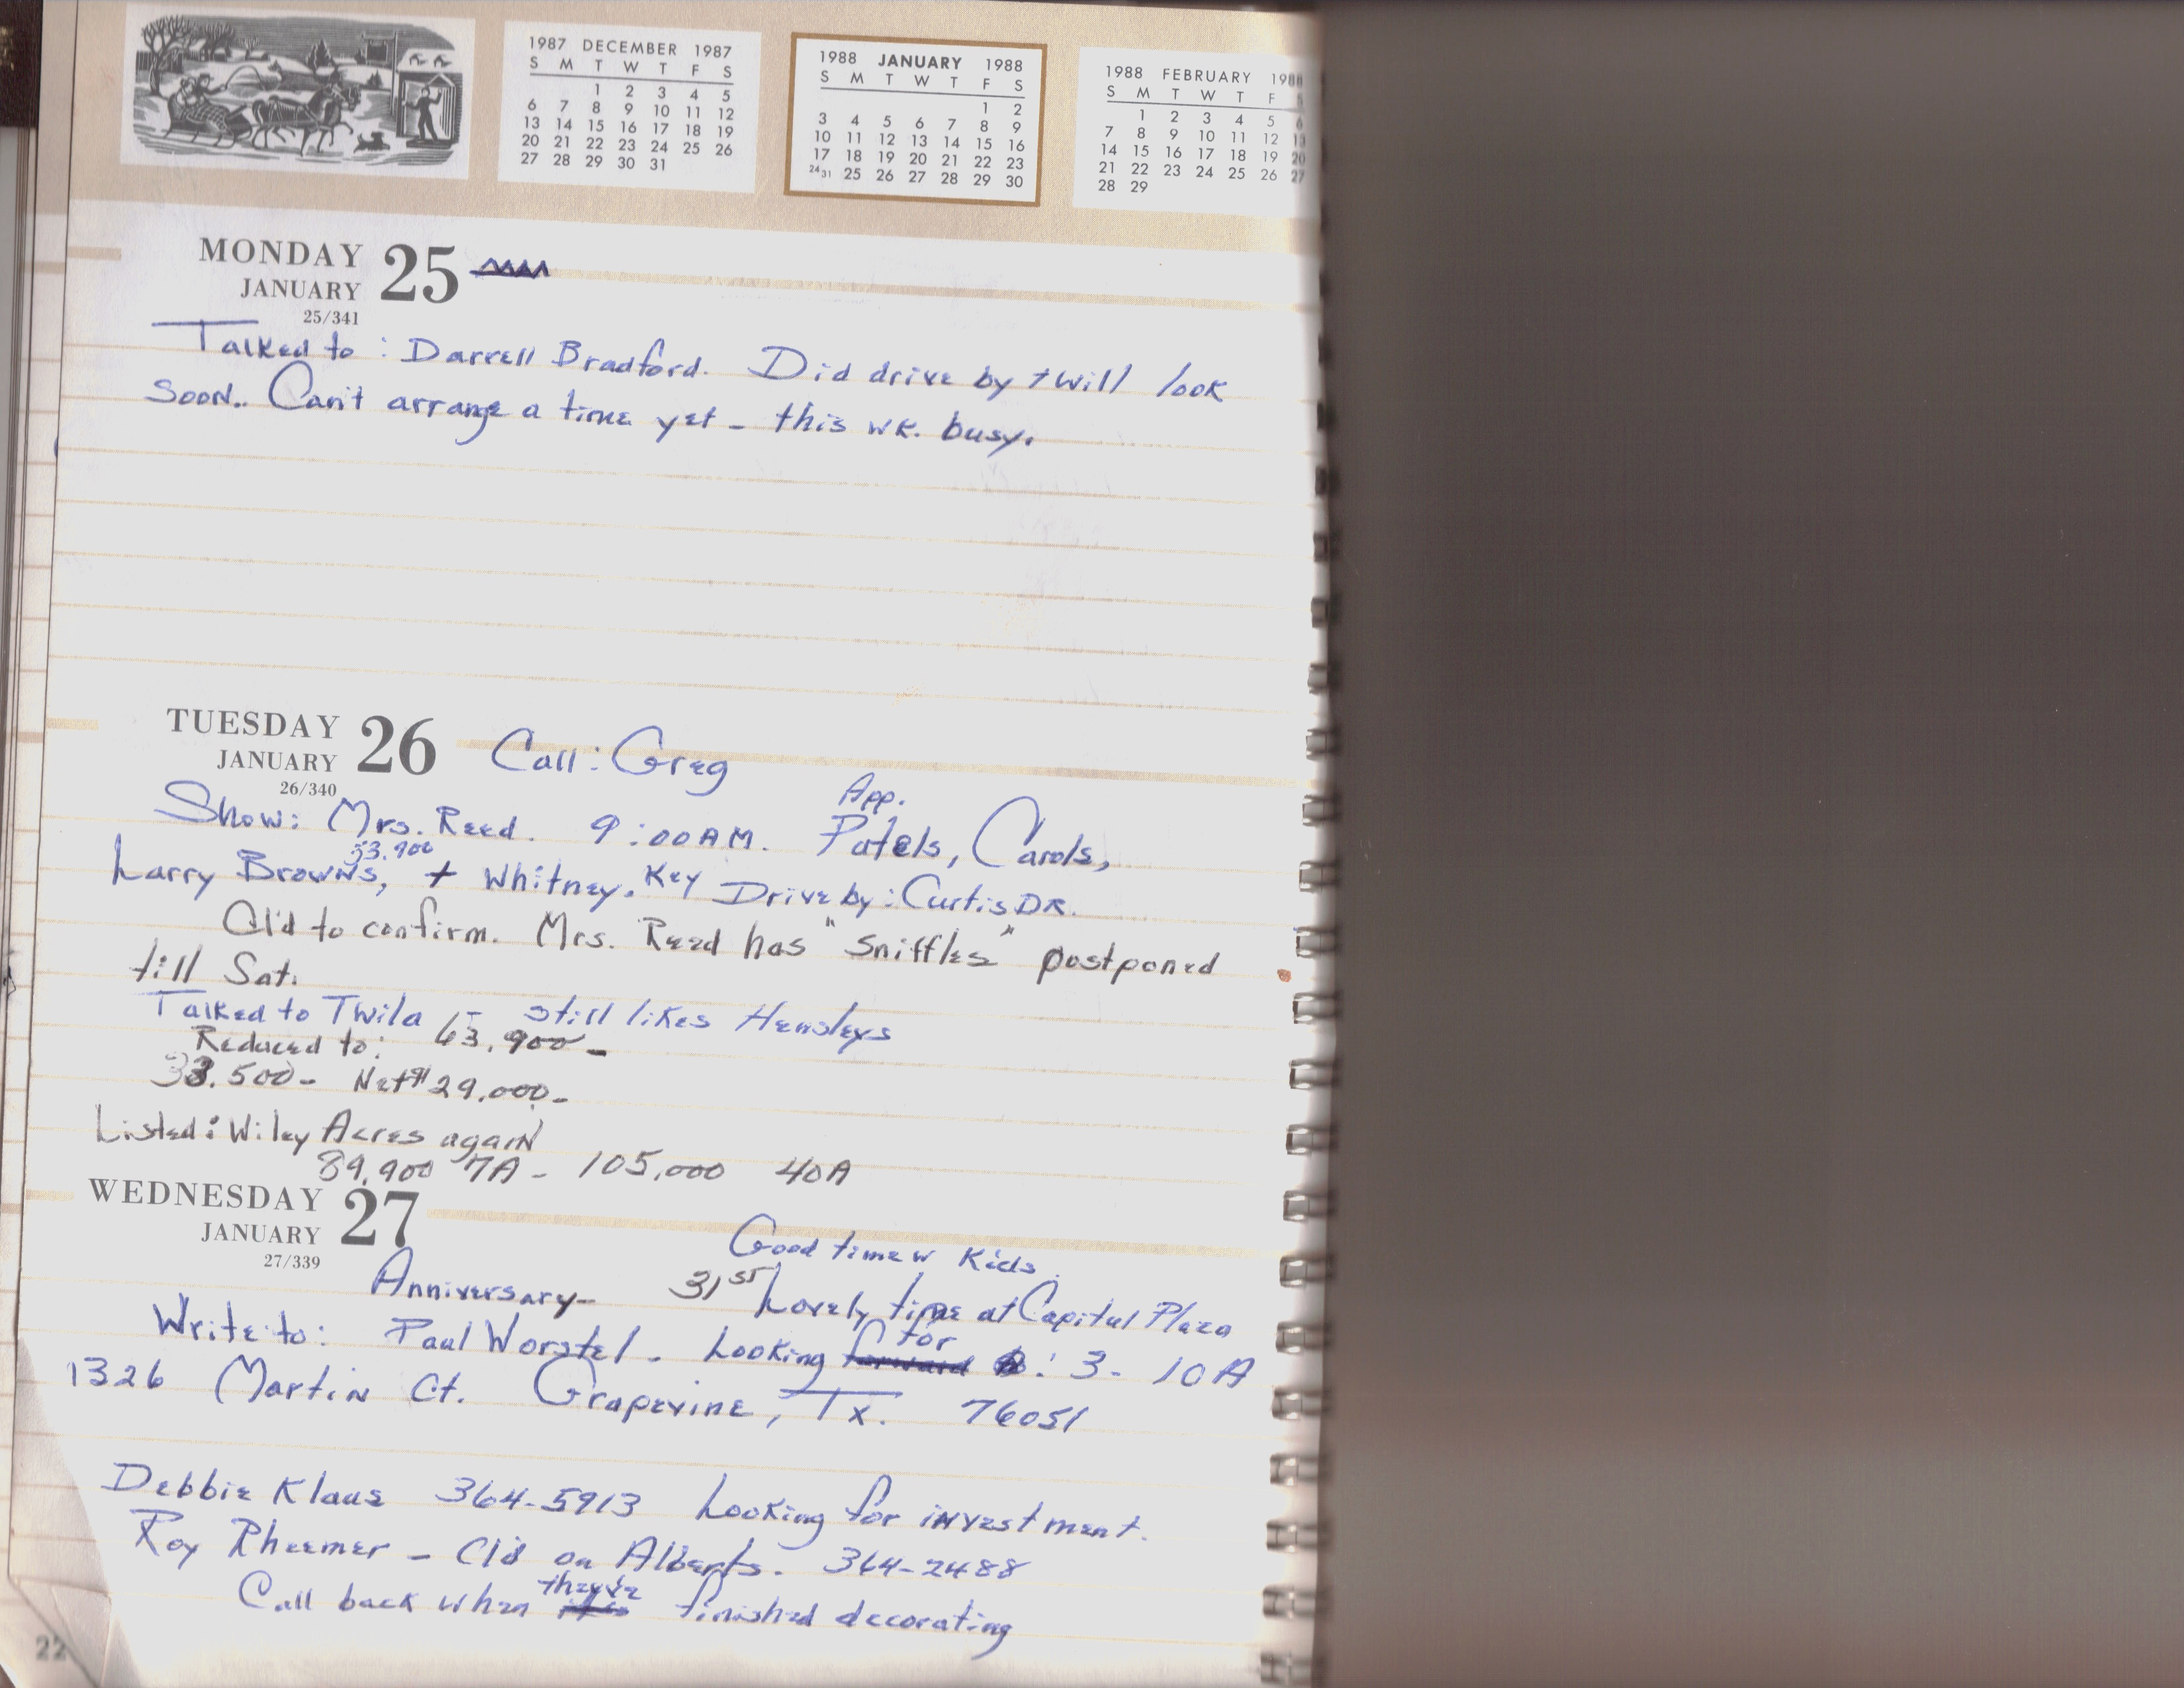 1987 DECEMBER 1987
S M T W T F S
1 2 3 4 5
6 7 8 9 10 11 12
13 14 15 16 17 18 19
20 21 22 23 24 25 26
27 28 29 30 31
1988 JANUARY 1988
S M T W T F S
1 2
3 4 5 6 7 8 9
10 11 12 13 14 15 16
17 18 19 20 21 22 23
24 31 25 26 27 28 29 30
1988 FEBRUARY 1988
S M T W T F S
1 2 3 4 5 6
7 8 9 10 11 12 13
14 15 16 17 18 19 20
21 22 23 24 25 26 27
28 29
MONDAY 25
JANUARY
25/341
Talked to: Darrell Bradford. Did drive by + will look
soon.. Can't arrange a time yet - this wk. busy.
TUESDAY 26 Call: Greg
JANUARY
26/340
App.
Show: Mrs. Reed. 9:00 AM. Patels, Carols,
53.900
Larry Browns, + Whitney. Key Drive by: Curtis DR.
Cl'd to confirm. Mrs. Reed has "sniffles" postponed
till Sat.
Talked to Twila - still likes Hensleys
Reduced to: 63,900-
33.500- Net $29,000.-
Listed: Wiley Acres again
89,900 7A - 105,000 40A
WEDNESDAY 27
JANUARY
27/339
Good time w Kids.
Anniversary- 31st Lovely time at Capitol Plaza
for
Write to: Paul Worstel. Looking forward : 3- 10A
1326 Martin Ct. Grapevine, Tx. 76051
Debbie Klaus 364-5913 Looking for investment.
Roy Rheemer - Cl'd on Alberts. 364-2488
they're
Call back when finished decorating
22